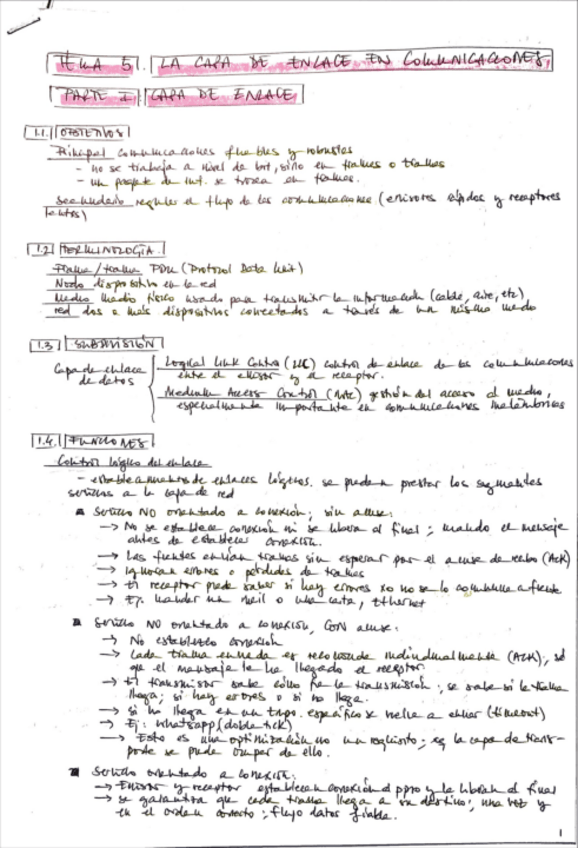 TEMA 5. LA CAPA DE ENLACE EN COMUNICACIONES
PARTE I CAPA DE ENLACE
1.1. OBJETIVOS
Principal comunicaciones fiables y robustas
- no se trabaja a nivel de bit, sino en frames o tramas
- un paquete de inf. se trocea en frames.
Secundario regular el flujo de las comunicaciones (emisores rápidos y receptores
lentos)
1.2 TERMINOLOGÍA
Frame/trama PDU (Protocol Data Unit)
Nodo dispositivo en la red
Medio medio físico usado para transmitir la información (cable, aire, etc)
red dos o más dispositivos conectados a través de un mismo medio
1.3 SUBDIVISIÓN
Capa de enlace
de datos
Logical Link Control (LLC) control de enlace de las comunicaciones
entre el emisor y el receptor.
Medium Access Control (MAC) gestión del acceso al medio,
especialmente importante en comunicaciones inalámbricas
1.4. FUNCIONES
Control lógico del enlace
- establecimientos de enlaces lógicos. se pueden prestar los siguientes
servicios a la capa de red
Servicio NO orientado a conexión, sin acuse:
→ No se establece conexión ni se libera al final; mando el mensaje
antes de establecer conexión.
→ Las fuentes envían tramas sin esperar por el acuse de recibo (ACK)
→ Ignoran errores o pérdidas de tramas
→ El receptor puede saber si hay errores xo no se lo comunica a fuente
→ Ej. mandar un mail o una carta, Ethernet
Servicio NO orientado a conexión, CON acuse:
→ No establezco conexión
→ Cada trama enviada es reconocida individualmente (ACK), sé
que el mensaje le ha llegado al receptor.
→ El transmisor sabe cómo fue la transmisión; se sabe si la trama
llega; si hay errores o si no llega.
→ si no llega en un tmpo. específico se vuelve a enviar (timeout)
→ Ej: whatsapp (doble tick)
→ Esto es una optimización no un requisito; la capa de trans-
porte se puede ocupar de ello.
Servicio orientado a conexión:
→ Emisor y receptor establecen conexión al ppio y la liberan al final
→ se garantiza que cada trama llega a su destino; una vez y
en el orden correcto; flujo datos fiable.
1